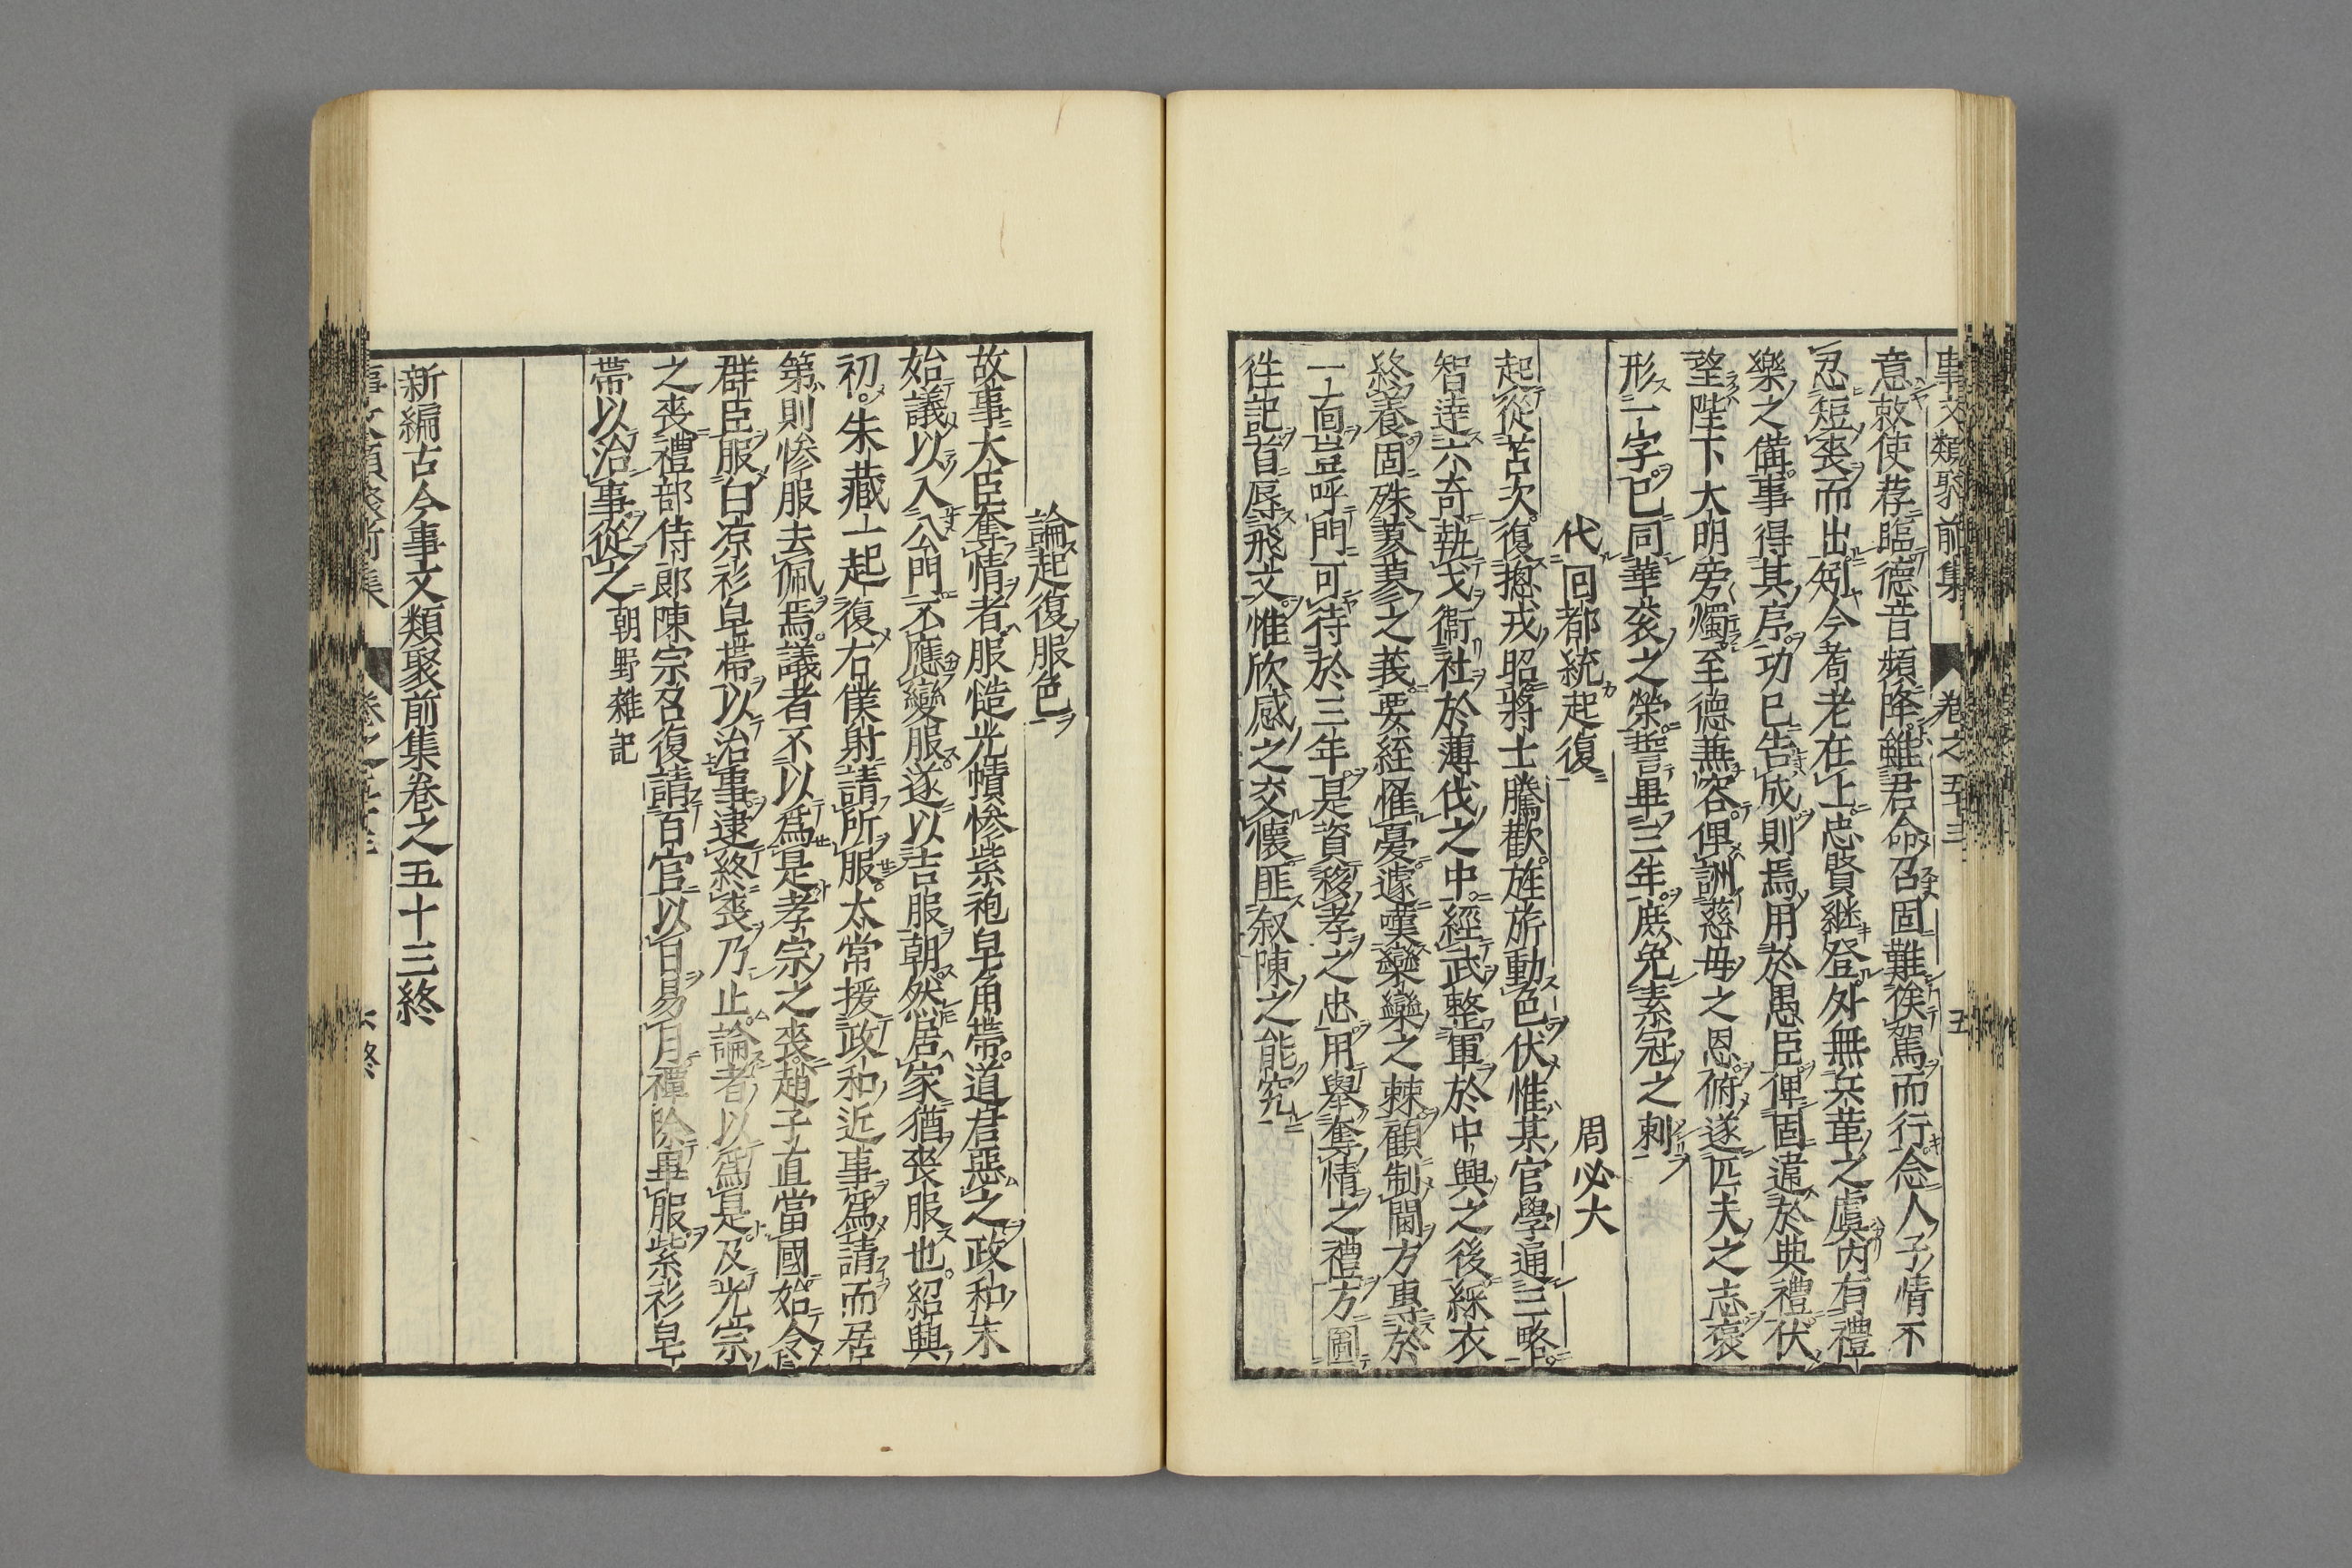 事文類聚前集 卷之五十三
意敦使荐臨德音頻降雖君命召固難俟駕而行念人子情不
忍短喪而出矧今耉老在上忠賢継登外無兵革之虞内有禮
樂之備事得其序功已告成則焉用於愚臣俾固違於典禮伏
望陛下大明旁燭至德無容俾訓慈母之恩俯遂匹夫之志褒
形一字已同華衮之榮誓畢三年庶免素冠之刺
代回都統起復 周必大
起從苫次復摠戎昭將士騰歡旌旂動色伏惟某官學通三略
智達六奇執戈衛社於薄伐之中經武整軍於中興之後綵衣
終養固殊蓼蓼之莪要絰罹憂遽嘆欒欒之棘顧制閫方專於
一面豈呼門可待於三年是資移孝之忠用舉奪情之禮方圖
徃記首辱飛文惟欣感之交懐匪叙陳之能究
論起復服色
故事大臣奪情者服慥光幘惨紫袍皂角帶道君惡之政和末
始議以入公門不應變服遂以吉服朝然居家猶喪服也紹興
初朱藏一起復右僕射請所服太常援政和近事爲請而居
第則惨服去佩焉議者不以爲是孝宗之喪趙子直當國始令
群臣服白凉衫皂帶以治事逮終喪乃止論者以爲是及光宗
之喪禮部侍郎陳宗召復請百官以日易月禫除畢服紫衫皂
帶以治事從之朝野雜記
新編古今事文類聚前集卷之五十三終